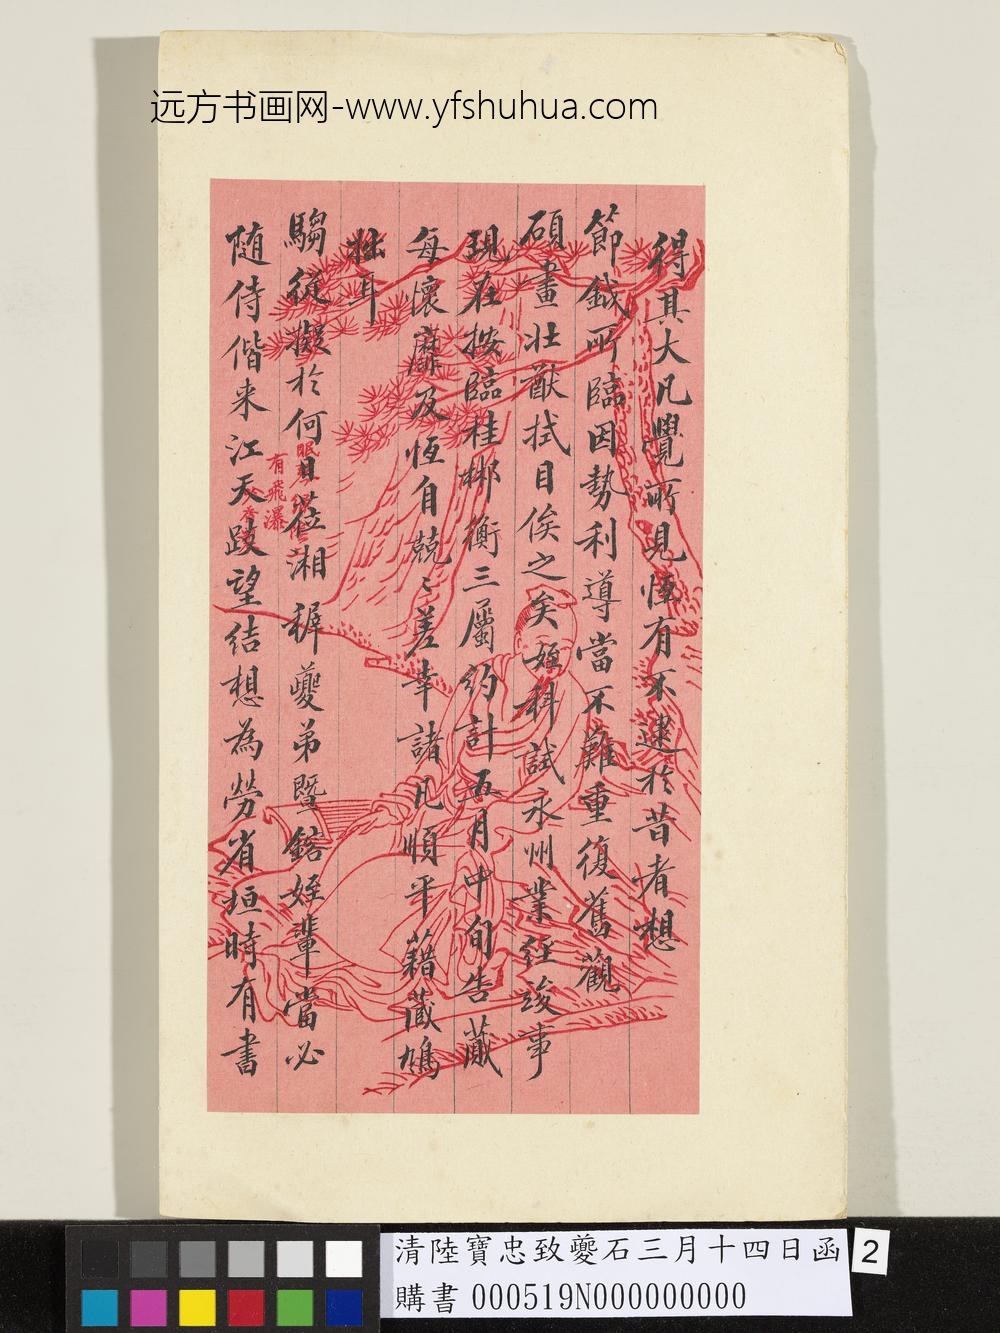 远方书画网-www.yfshuhua.com
得其大凡覺所見恆有不逮於昔者想
節鉞所臨因勢利導當不難重復舊觀
碩畫壯猷拭目俟之矣姪科試永州業經竣事
現在按臨桂郴衡三屬約計五月中旬告蕆
每懷靡及恆自兢兢差幸諸凡順平藉藏鳩
拙耳
騶從擬於何日蒞湘稺夔弟暨鎔姪輩當必
隨侍偕来江天跂望結想為勞省垣時有書
有飛瀑
清陸寶忠致夔石三月十四日函
購書 000519N000000000
2